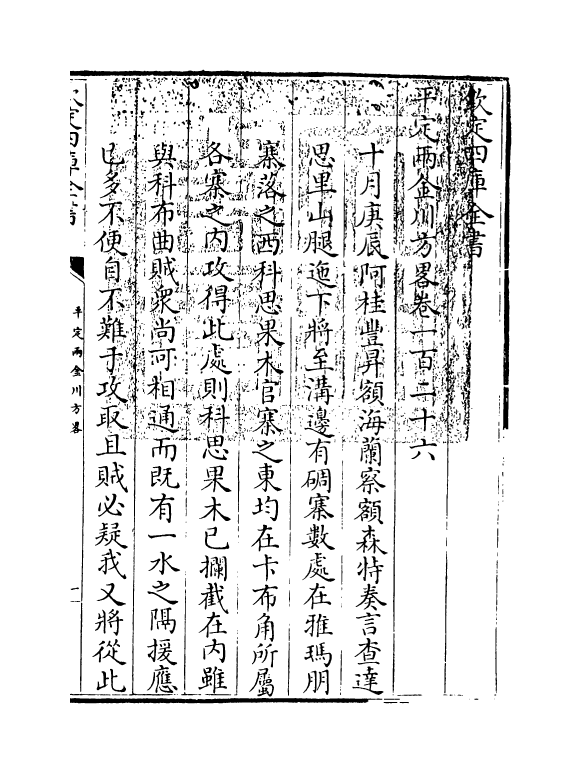 欽定四庫全書
平定兩金川方畧卷一百二十六
十月庚辰阿桂豐昇額海蘭察額森特奏言查達
思里山腿迤下將至溝邊有碉寨數處在雅瑪朋
寨落之西科思果木官寨之東均在卡布角所屬
各寨之内攻得此處則科思果木已攔截在内雖
與科布曲賊衆尚可相通而既有一水之隔援應
已多不便自不難于攻取且賊必疑我又將從此
欽定四庫全書
平定兩金川方畧
一